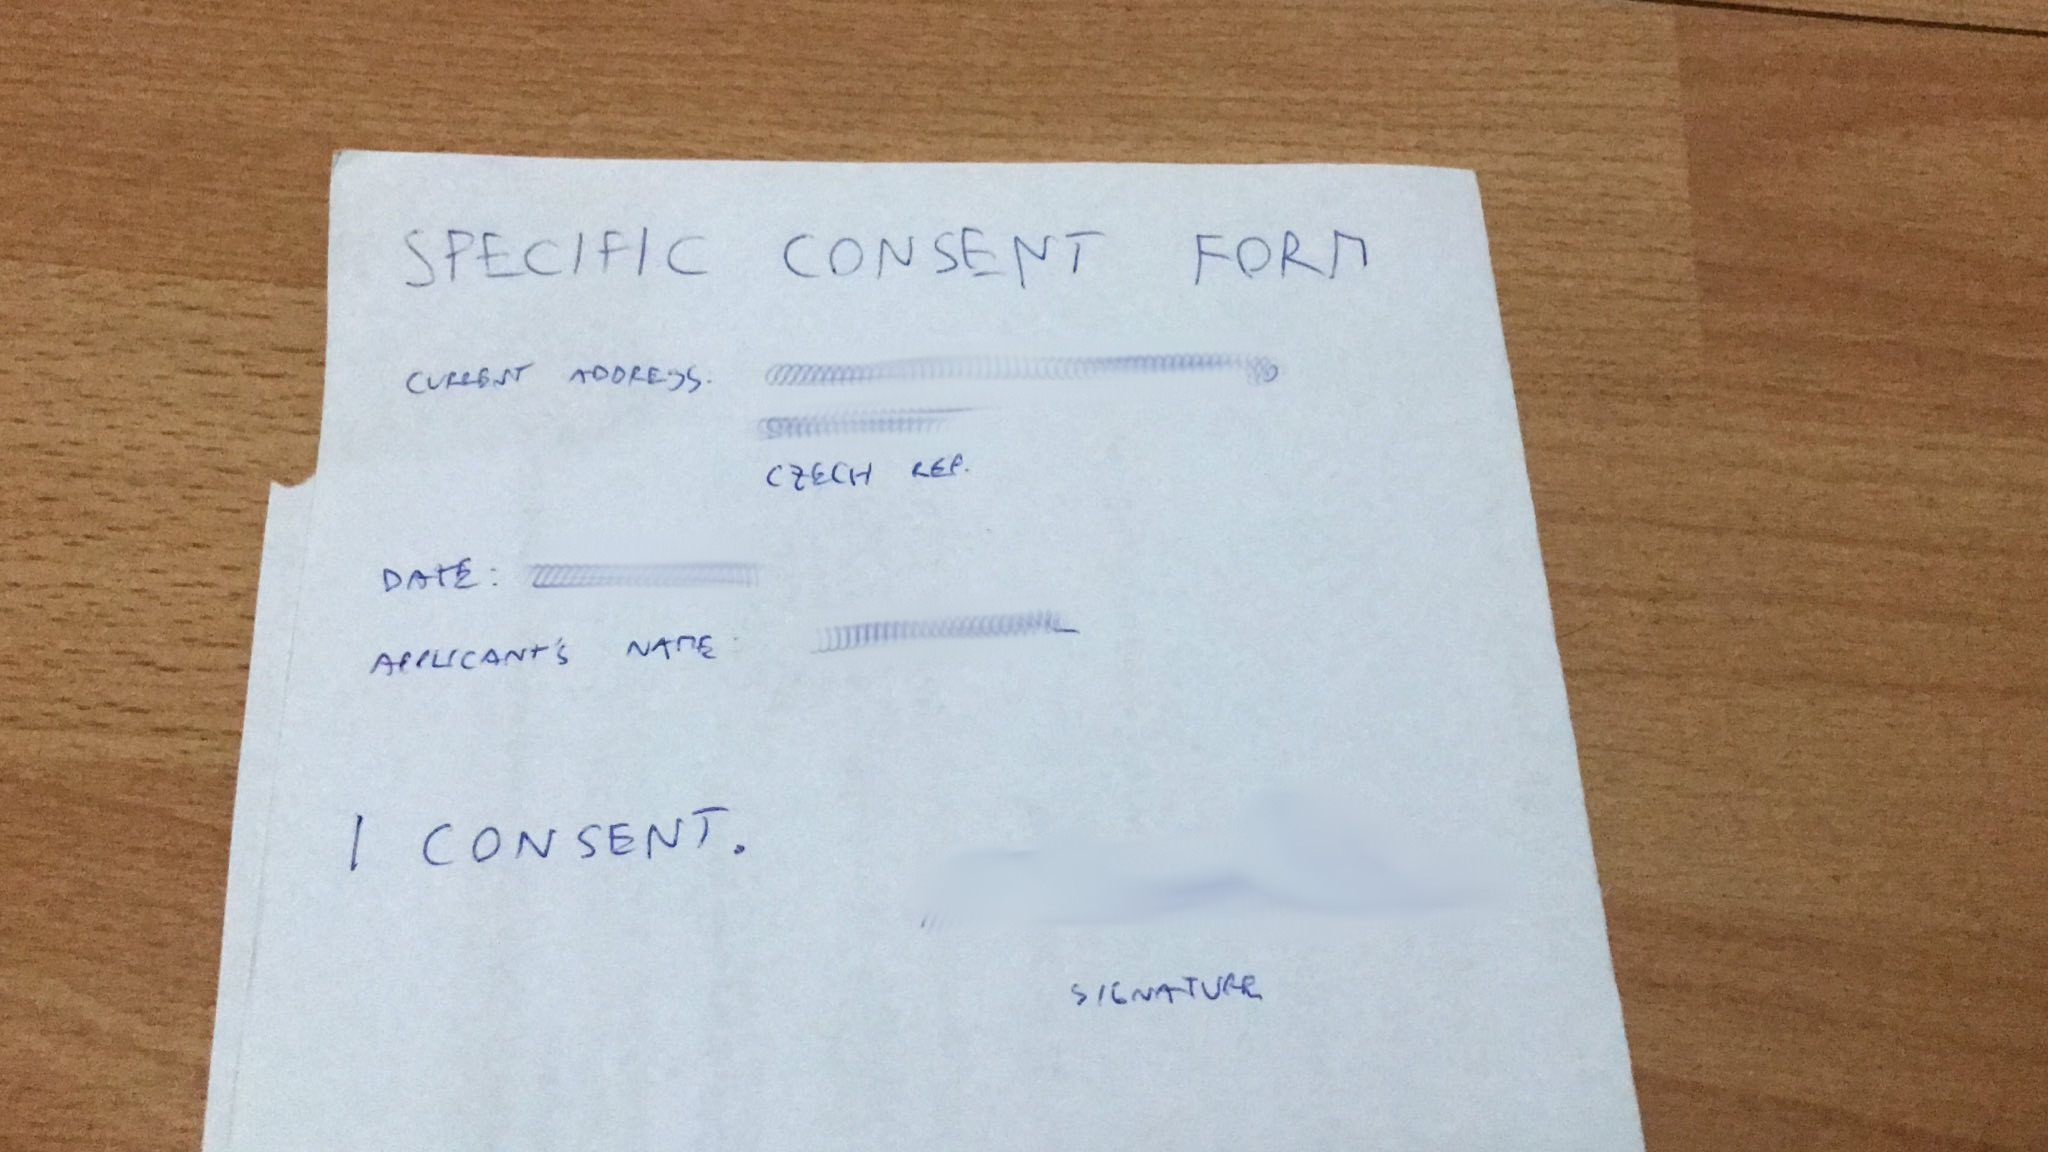 SPECIFIC CONSENT FORM
CURRENT ADDRESS:
CZECH REP.
DATE:
APPLICANT'S NAME:
I CONSENT.
SIGNATURE